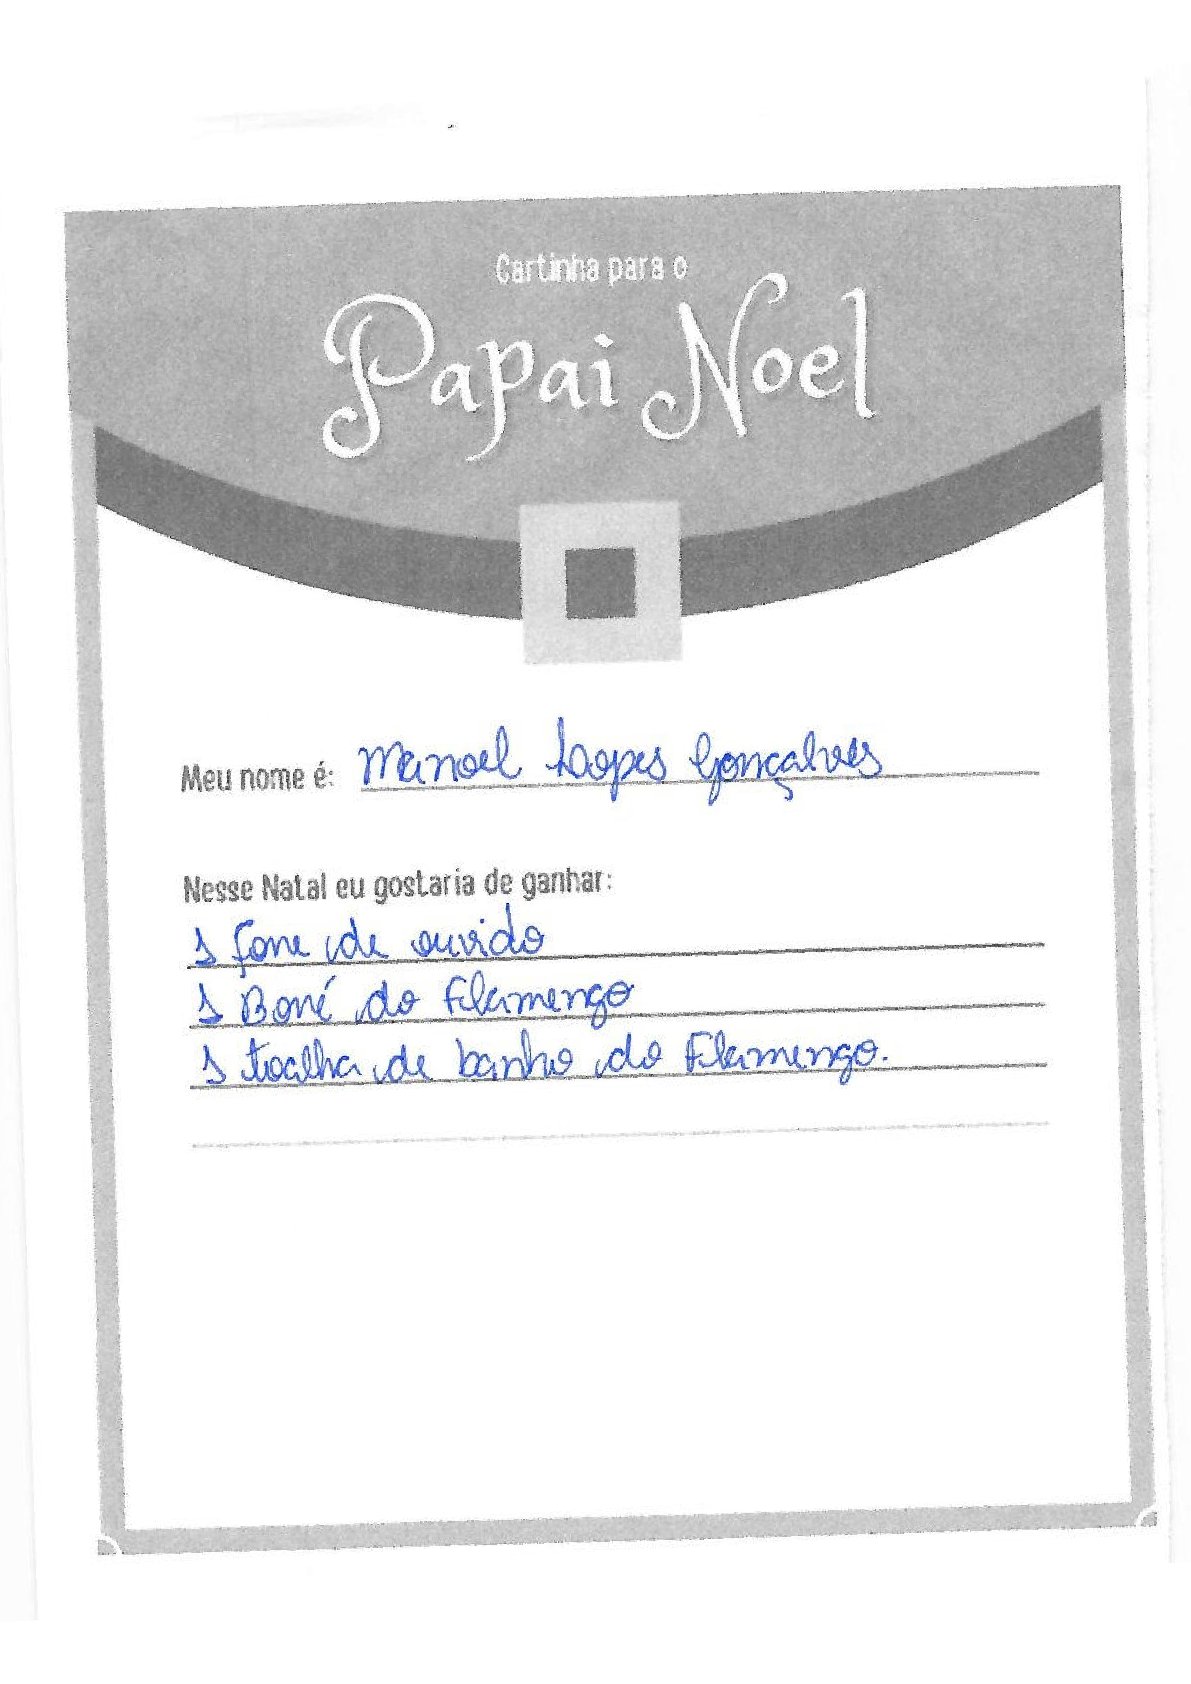 Cartinha para o
Papai Noel
Meu nome é: Manoel Lopes Gonçalves
Nesse Natal eu gostaria de ganhar:
1 fone de ouvido
1 Boné do Flamengo
1 toalha de banho do Flamengo.